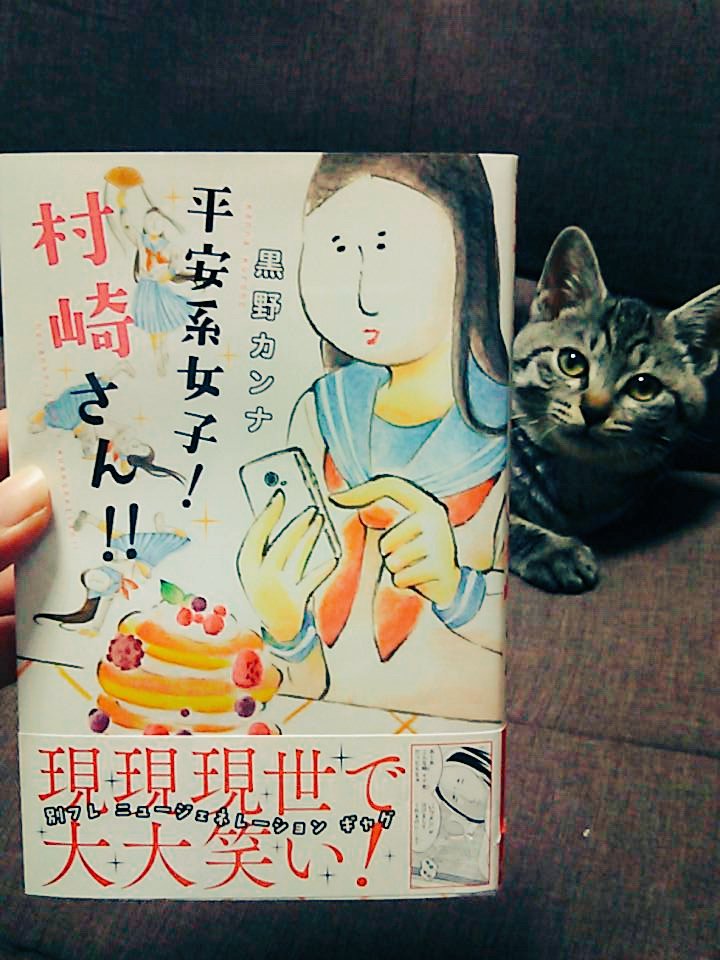 平安系女子!
村崎さん!!
黒野カンナ
KANNA KURONO
現現現世で
別フレ ニュージェネレーション ギャグ
大大笑い!